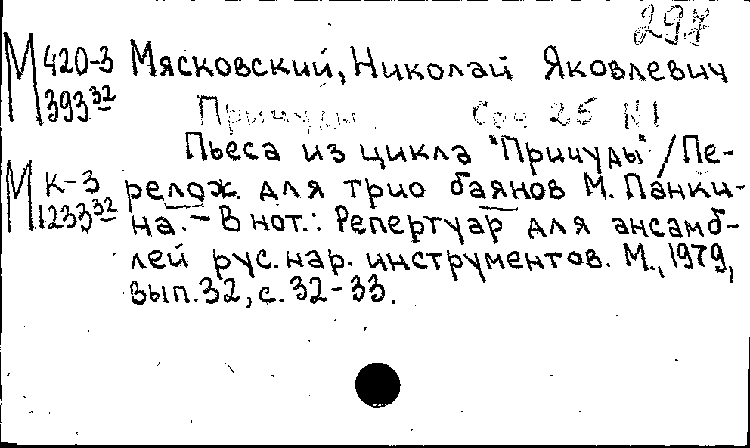 297
М 420-3 Мясковский, Николай Яковлевич
393 32
Причуды Соч 25 N1
Пьеса из цикла "Причуды" / Пе-
М К-3 релож. для трио баянов М. Панки-
1233 32 на. – В нот.: Репертуар для ансамб-
лей рус. нар. инструментов. М., 1979,
вып. 32, с. 32-33.